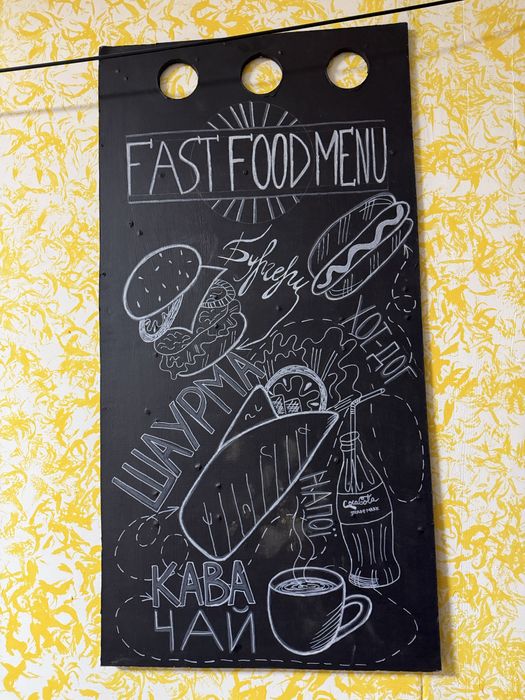 FAST FOOD MENU
Бургери
ХОТ-ДОГ
ШАУРМА
НАПОЇ
CocaCola
TRADE MARK
КАВА
ЧАЙ